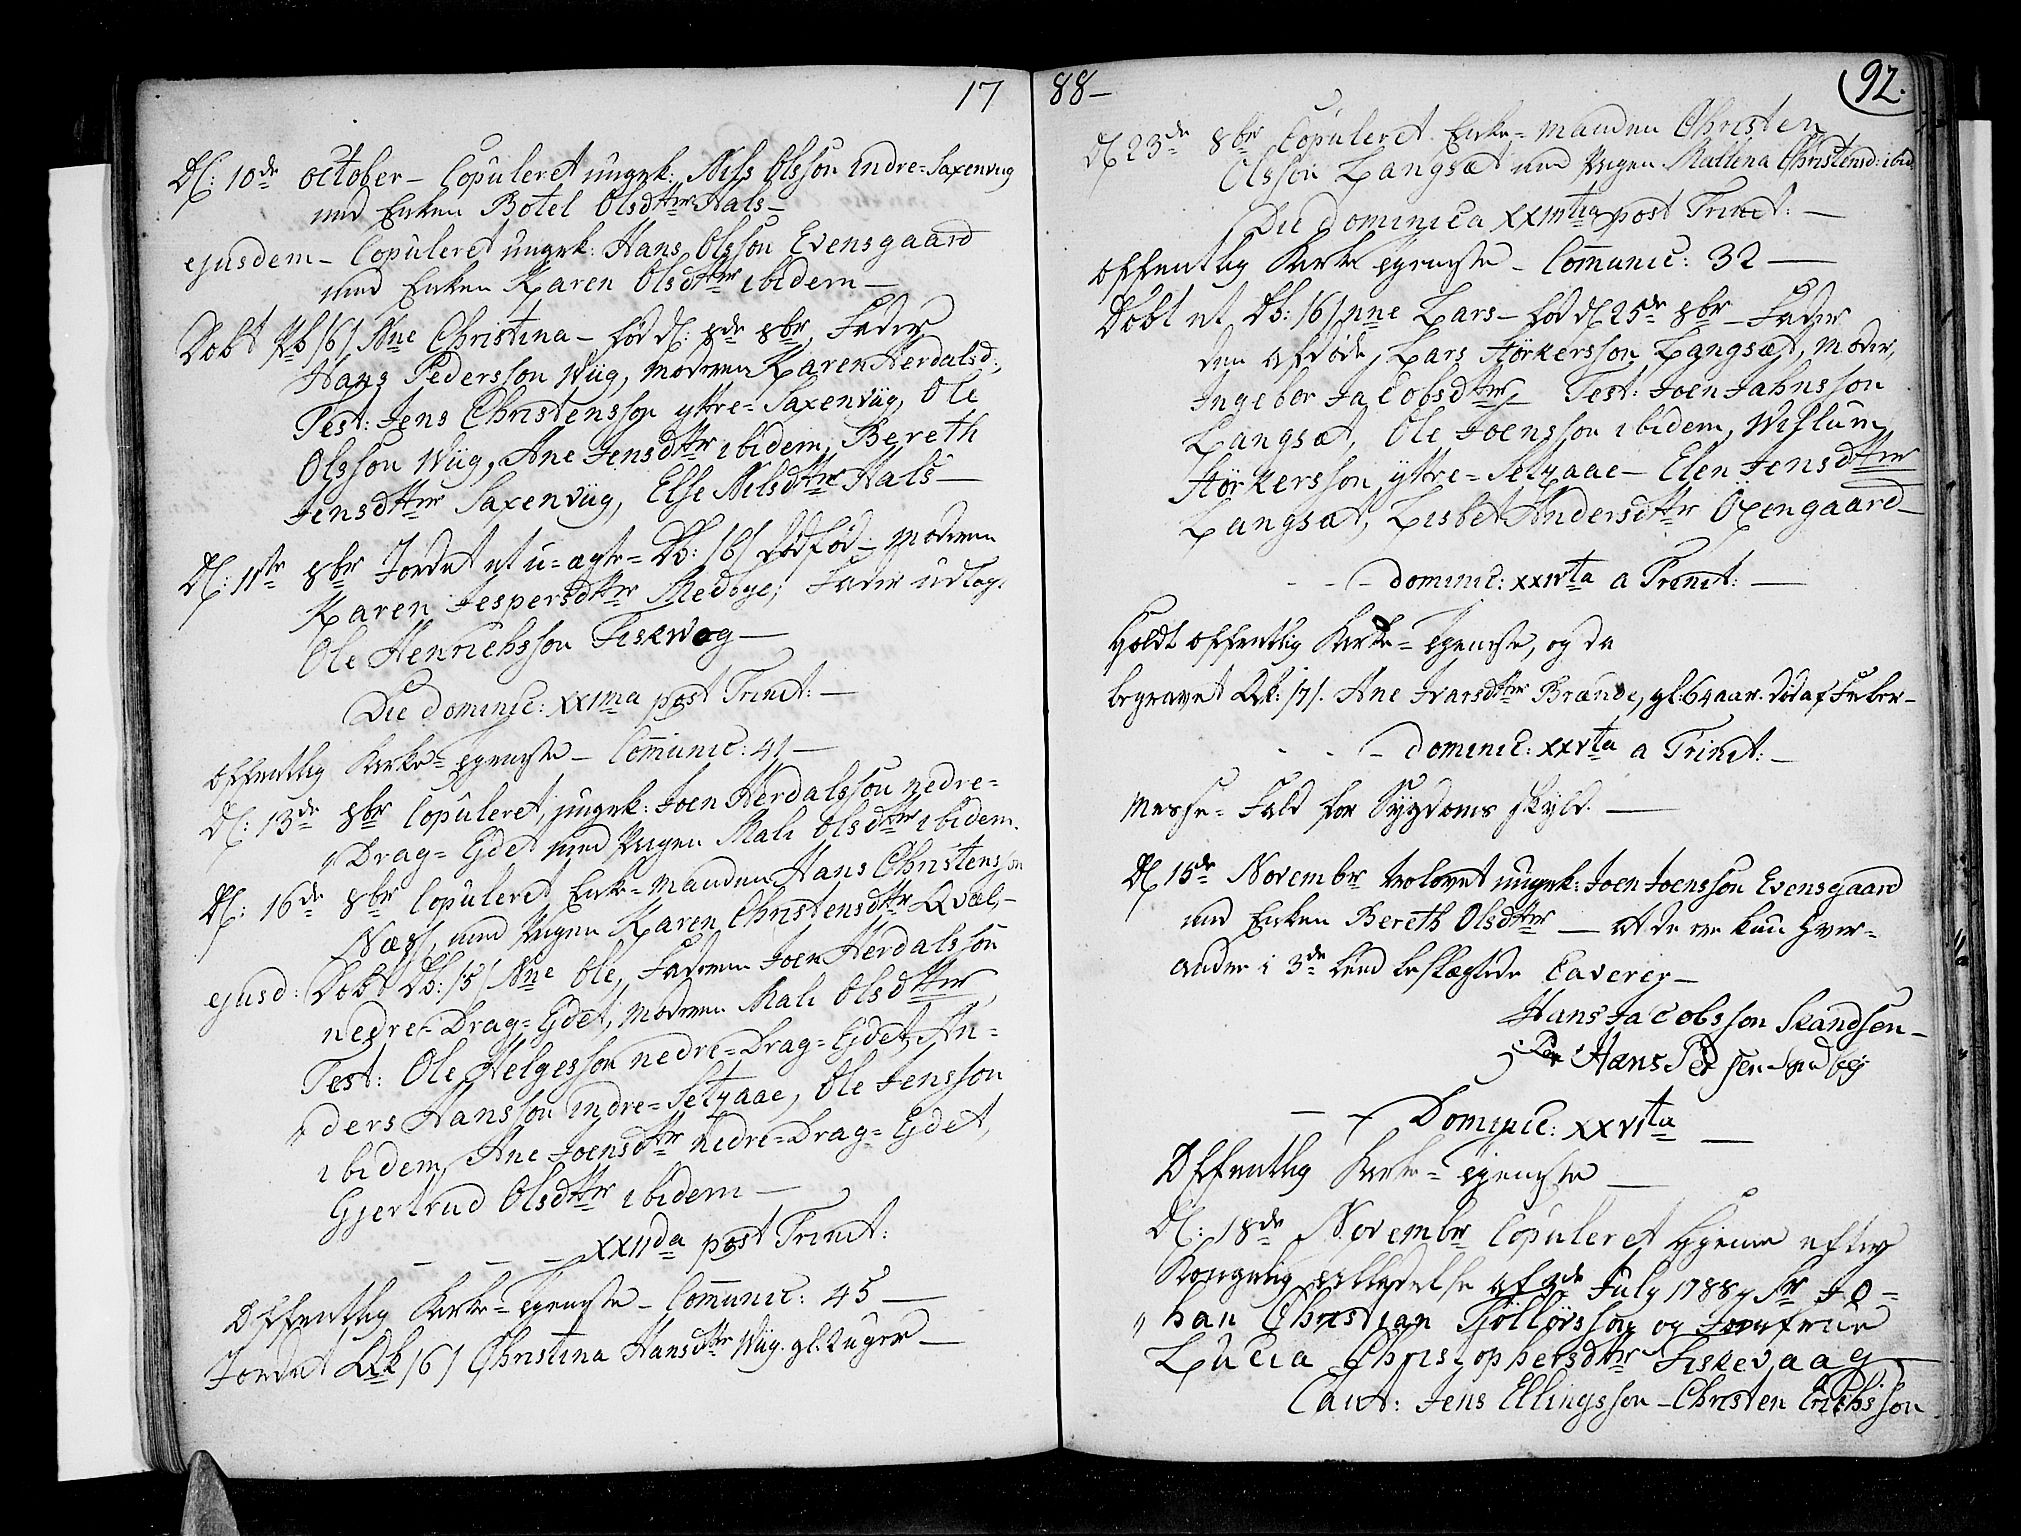 17
D: 10de october – Copuleret ungek: Nils Olsson Indre=Saxenvig
med Enken Botel Olsdttr Hals –
ejusdem – Copuleret ungek: Hans Olsson Evensgaard
med Enken Karen Olsdttr ibidem –
Døbt Pb /6/ Nne Christina – fød d: 8de 8br, Fader
Hans Pedersson Wiig, Moderen Karen Herdalsd:,
Test: Jens Christensson yttre=Saxenviig, Ole
Olsson Wiig, Ane Jensdttr ibidem, Bereth
Jensdttr Saxenviig, Else Nilsdttr Hals –
D: 11te 8br Jordet et u=ægte=Db: /6/ dødfød – Moderen
Karen Jespersdttr Medbye; Fader udlagt
Ole Henrichsson Fiskevog –
Die dominic: XXIma post Trinit: –
offentlig Kirke=tjeneste – Communic: 41 –
D: 13de 8br Copuleret, ungek: Joen Herdalsson nedre=
Drag=Ejdet med Pigen Mali Olsdttr ibidem.
D: 16de 8br Copuleret Enke=Manden Hans Christensson
Næss, med Pigen Karen Christensdttr Qval –
ejusd: Døbt Db: /5/ Nne Ole, Faderen Joen Herdalsson
nedre=Drag=Ejdet, Moderen Mali Olsdttr,
Test: Ole Helgesson nedre=Drag=Ejdet, An=
ders Hansson indre=Setzaae, Ole Jensson
ibidem, Ane Joensdttr nedre=Drag=Ejdet,
Gjertrud Olsdttr ibidem –
– – – XXIIda post Trinit:
Offentlig Kirke=tjeneste – Communic: 45 –
Jordet Qk /6/ Christina Hansdttr Wiig. gl: 2 uger –
88 –
92.
D 23de 8br Copuleret Enke=Manden Christen
Olsson Langsæt med Pigen Mallena Christensd: ibid:
Die dominica XXIIItia post Trinit: –
offentlig Kirke tjeneste – Communic: 32 –
Døbt et Db: /6/ nne Lars – fød d 25de 8br – Fader
den afdøde, Lars Störkersson Langsæt, Moder,
Ingebor Jacobsdttr – Test: Joen Jahnsson
Langsæt, Ole Joensson ibidem, Willum
Störkersson yttre=Setzaae – Elen Jensdttr
Langsæt, Lisbet Andersdttr Öxengaard –
– – – dominic: XXIVta a Trinit: –
Holdt offentlig Kirke=tjeneste, og da
begravet Qk: /7/. Ane Ivarsdttr Brænde, gl: 64 aar. død af Feber –
– – – dominic: XXVta a Trinit: –
Messe=Fald for Sygdoms skyld. –
D 15de Novembr trolovet ungek: Joen Joensson Evensgaard
med Enken Bereth Olsdttr – at de ere kun hver=
andre i 3de Leed beslægtede Caverer –
Hans Jacobsson Skandsen –
Hans Pedersen
– – Dominic: XXVIta –
Offentlig Kirke=tjeneste –
D: 18de Novembr Copuleret hjemme efter
Kongelig tilladelse af July 1788, Sr Jo=
han Christian Tjöllövsson og Jomfrue
Lucia Christophersdttr Fiskevaag –
Caut: Jens Ellingsson – Christen Erichsson